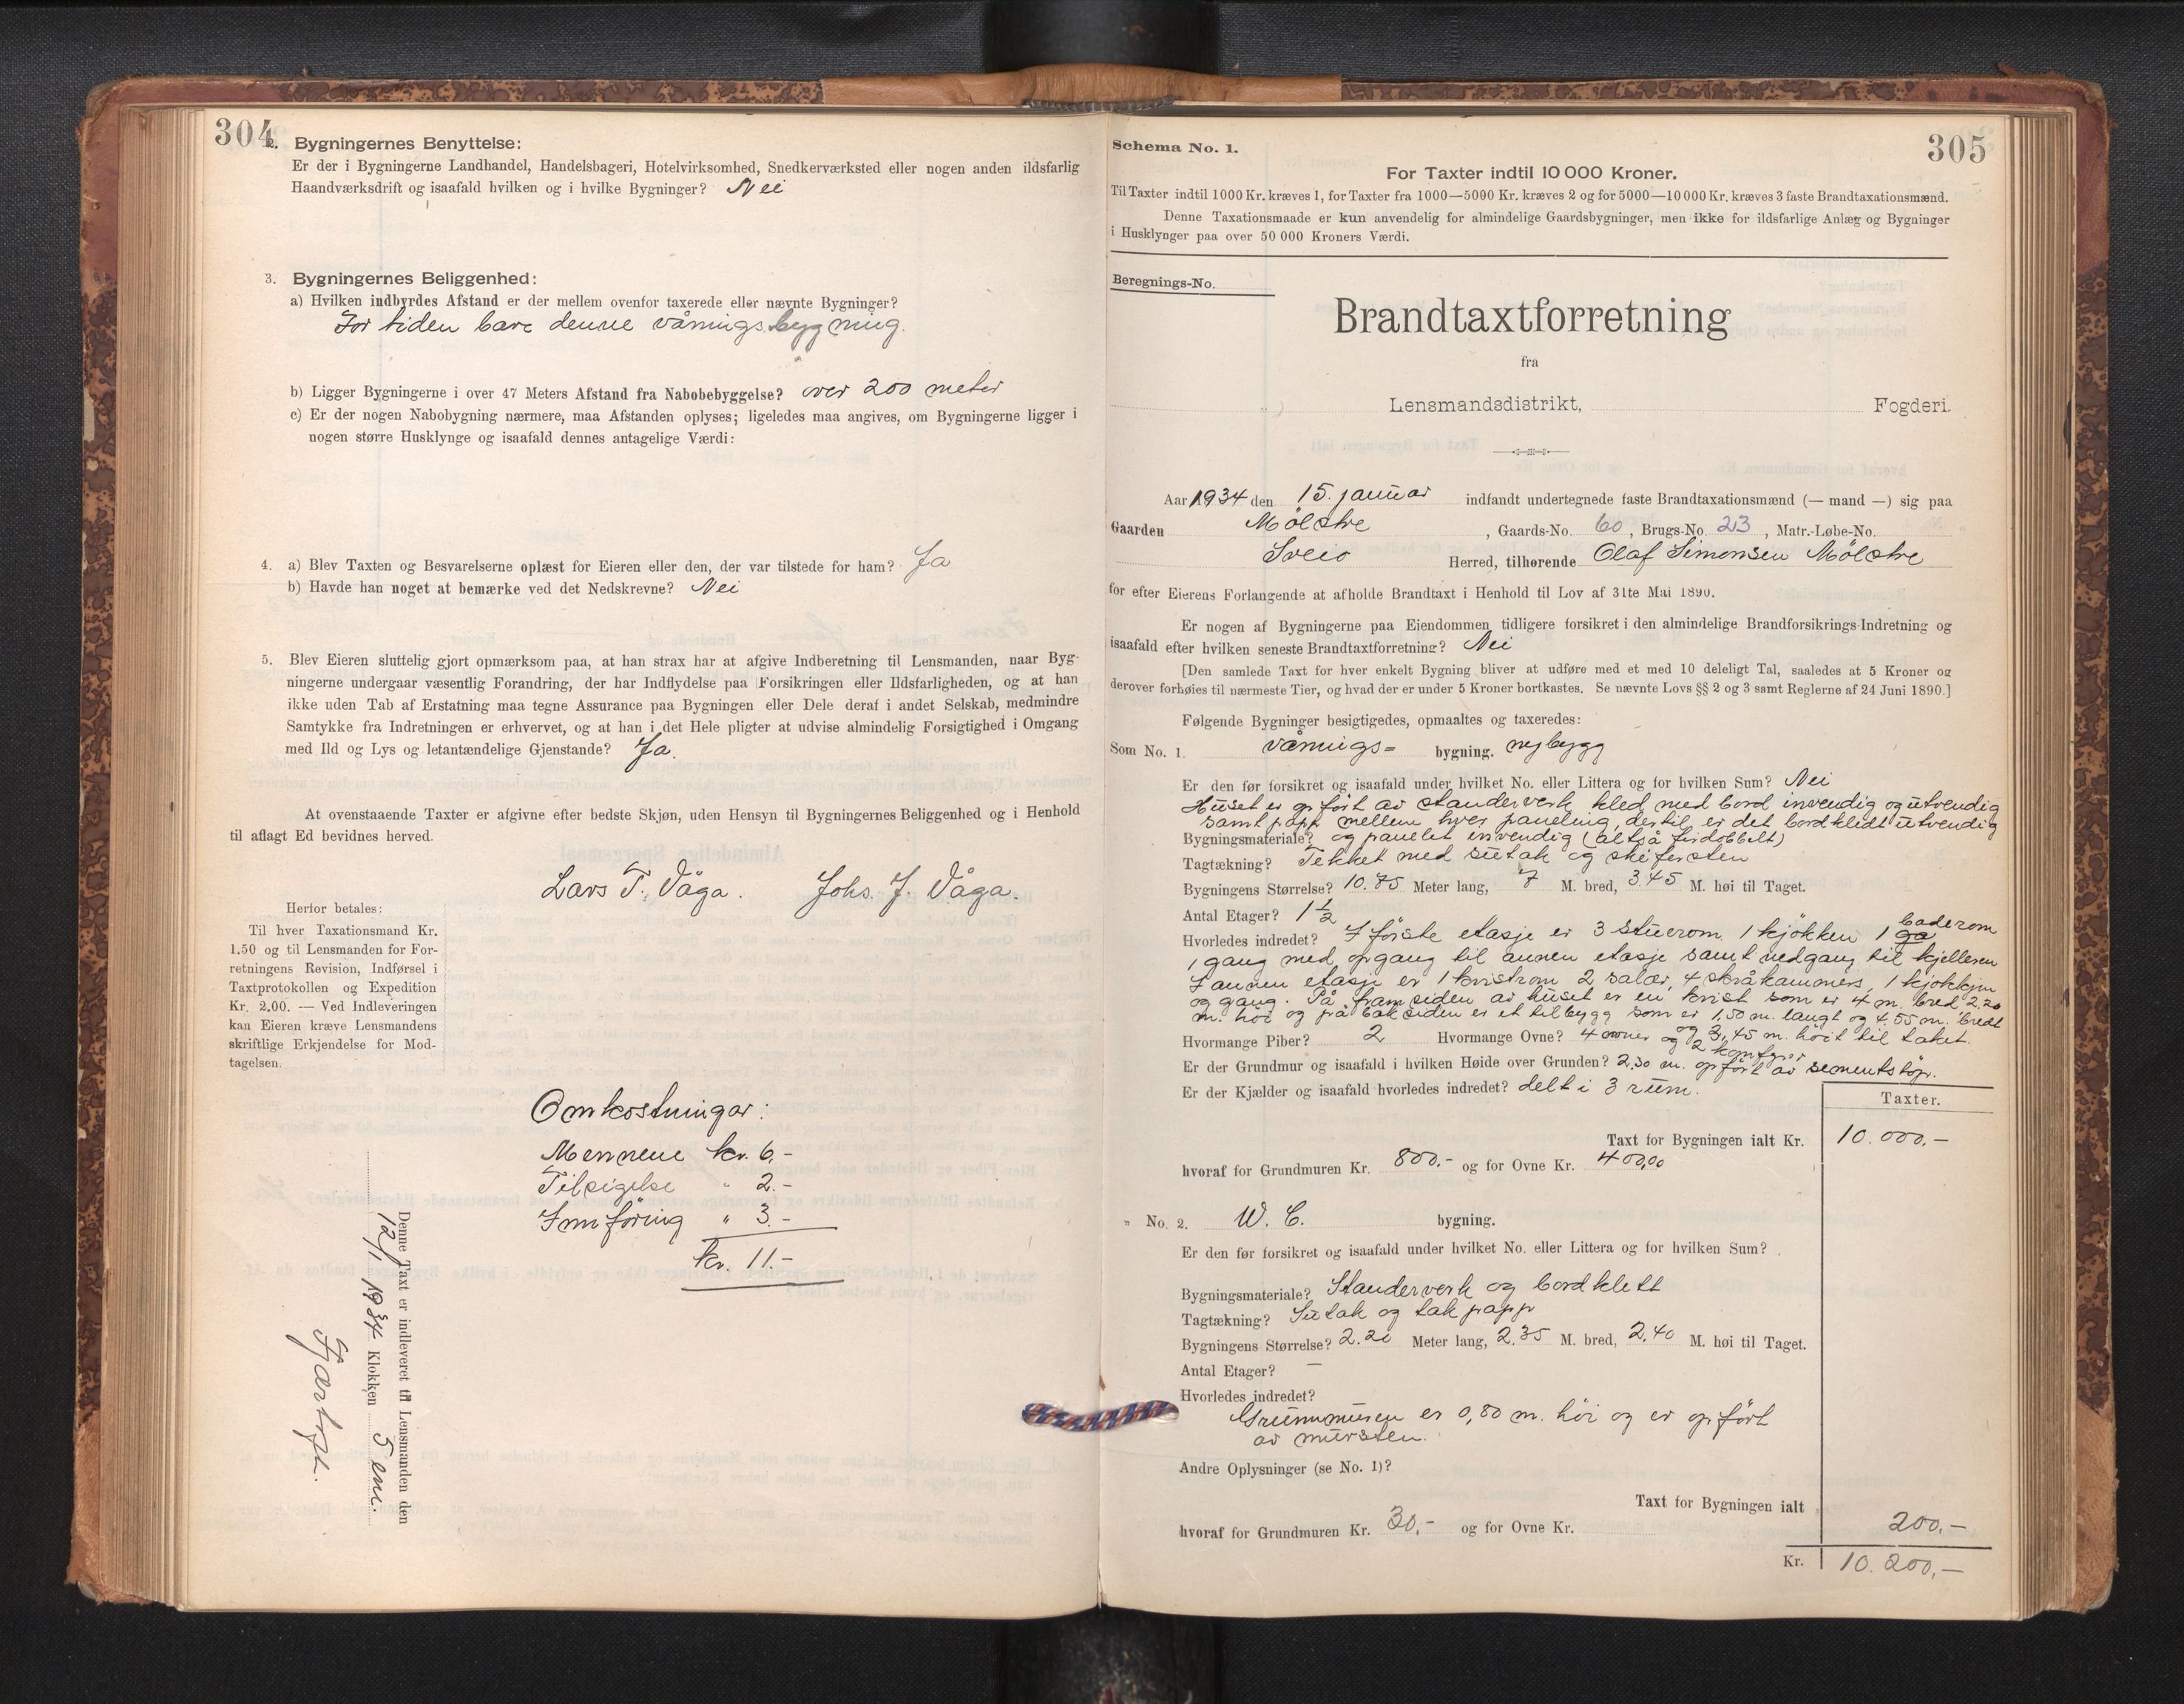 304
2. Bygningernes Benyttelse:
Er der i Bygningerne Landhandel, Handelsbageri, Hotelvirksomhed, Snedkerværksted eller nogen anden ildsfarlig
Haandværksdrift og isaafald hvilken og i hvilke Bygninger? Nei
3. Bygningernes Beliggenhed:
a) Hvilken indbyrdes Afstand er der mellem ovenfor taxerede eller nævnte Bygninger?
For tiden bare denne våningsbygning.
b) Ligger Bygningerne i over 47 Meters Afstand fra Nabobebyggelse? over 200 meter
c) Er der nogen Nabobygning nærmere, maa Afstanden oplyses; ligeledes maa angives, om Bygningerne ligger i
nogen større Husklynge og isaafald dennes antagelige Værdi:
4. a) Blev Taxten og Besvarelserne oplæst for Eieren eller den, der var tilstede for ham? Ja
b) Havde han noget at bemærke ved det Nedskrevne? Nei
5. Blev Eieren sluttelig gjort opmærksom paa, at han strax har at afgive Indberetning til Lensmanden, naar Byg-
ningerne undergaar væsentlig Forandring, der har Indflydelse paa Forsikringen eller Ildsfarligheden, og at han
ikke uden Tab af Erstatning maa tegne Assurance paa Bygningen eller Dele deraf i andet Selskab, medmindre
Samtykke fra Indretningen er erhvervet, og at han i det Hele pligter at udvise almindelig Forsigtighed i Omgang
med Ild og Lys og letantændelige Gjenstande? Ja.
At ovenstaaende Taxter er afgivne efter bedste Skjøn, uden Hensyn til Bygningernes Beliggenhed og i Henhold
til aflagt Ed bevidnes herved.
Lars T. Våga. Johs. J. Våga.
Herfor betales:
Til hver Taxationsmand Kr.
1.50 og til Lensmanden for For-
retningens Revision, Indførsel i
Taxtprotokollen og Expedition
Kr. 2.00. — Ved Indleveringen
kan Eieren kræve Lensmandens
skriftlige Erkjendelse for Mod-
tagelsen.
Omkostningar:
Mennene kr. 6,-
Tilsigelse " 2.-
Innføring " 3.-
kr. 11.-
Denne Taxt er indleveret til Lensmanden den
12/1 1934 Klokken 5 em.
305
Schema No. 1.
For Taxter indtil 10 000 Kroner.
Til Taxter indtil 1000 Kr. kræves 1, for Taxter fra 1000—5000 Kr. kræves 2 og for 5000—10 000 Kr. kræves 3 faste Brandtaxationsmænd.
Denne Taxationsmaade er kun anvendelig for almindelige Gaardsbygninger, men ikke for ildsfarlige Anlæg og Bygninger
i Husklynger paa over 50 000 Kroners Værdi.
Beregnings-No.
Brandtaxtforretning
fra
Lensmandsdistrikt, Fogderi.
Aar 1934 den 15. januar indfandt undertegnede faste Brandtaxationsmænd (— mand —) sig paa
Gaarden Mölstre, Gaards-No. 60, Brugs-No. 213, Matr.-Løbe-No.
Sveio Herred, tilhørende Olaf Simonsen Mölstre
for efter Eierens Forlangende at afholde Brandtaxt i Henhold til Lov af 31te Mai 1890.
Er nogen af Bygningerne paa Eiendommen tidligere forsikret i den almindelige Brandforsikrings-Indretning og
isaafald efter hvilken seneste Brandtaxtforretning? Nei
[Den samlede Taxt for hver enkelt Bygning bliver at udføre med et med 10 deleligt Tal, saaledes at 5 Kroner og
derover forhøies til nærmeste Tier, og hvad der er under 5 Kroner bortkastes. Se nævnte Lovs §§ 2 og 3 samt Reglerne af 24 Juni 1890.]
Følgende Bygninger besigtigedes, opmaaltes og taxeredes:
Som No. 1. vånings= bygning. nybygg
Er den før forsikret og isaafald under hvilket No. eller Littera og for hvilken Sum? Nei
Huset er opført av standerverk kled med bord invendig og utvendig
samt papp mellem hver paneling, dertil er det bordkledt utvendig
Bygningsmateriale? og panelet invendig (altså firdobbelt)
Tagtækning? Tekket med sutak og skifersten
Bygningens Størrelse? 10.75 Meter lang, 7 M. bred, 3.45 M. høi til Taget.
Antal Etager? 1 1/2
Hvorledes indredet? I første etasje er 3 stuerom 1 kjøkken 1 ga baderom
1 gang med opgang til annen etasje samt nedgang til kjelleren
I annen etasje er 1 kvistrom 2 salar, 4 skråkammers, 1 kjøkken
og gang. På framsiden av huset er en kvist som er 4 m. bred 2.20
m. høi og på baksiden er et tilbygg som er 1,50 m. langt og 4.55 m. bredt
og 3,45 m. høit til taket.
Hvormange Piber? 2 Hvormange Ovne? 4 ovner og 2 komfyrer
Er der Grundmur og isaafald i hvilken Høide over Grunden? 2,30 m. opført av sementstøp.
Er der Kjælder og isaafald hvorledes indredet? delt i 3 rum.
Taxter.
Taxt for Bygningen ialt Kr. 10.000.-
hvoraf for Grundmuren Kr. 800.- og for Ovne Kr. 400,00
" No. 2. W. C. bygning.
Er den før forsikret og isaafald under hvilket No. eller Littera og for hvilken Sum?
Bygningsmateriale? Standerverk og bordklett
Tagtækning? Sutak og takpapp
Bygningens Størrelse? 2.20 Meter lang, 2.35 M. bred, 2,40 M. høi til Taget.
Antal Etager? —
Hvorledes indredet?
Grunnmuren er 0,80 m. høi og er opført
av mursten.
Andre Oplysninger (se No. 1)?
Taxt for Bygningen ialt
hvoraf for Grundmuren Kr. 30,- og for Ovne Kr. 200,-
Kr. 10.200,-